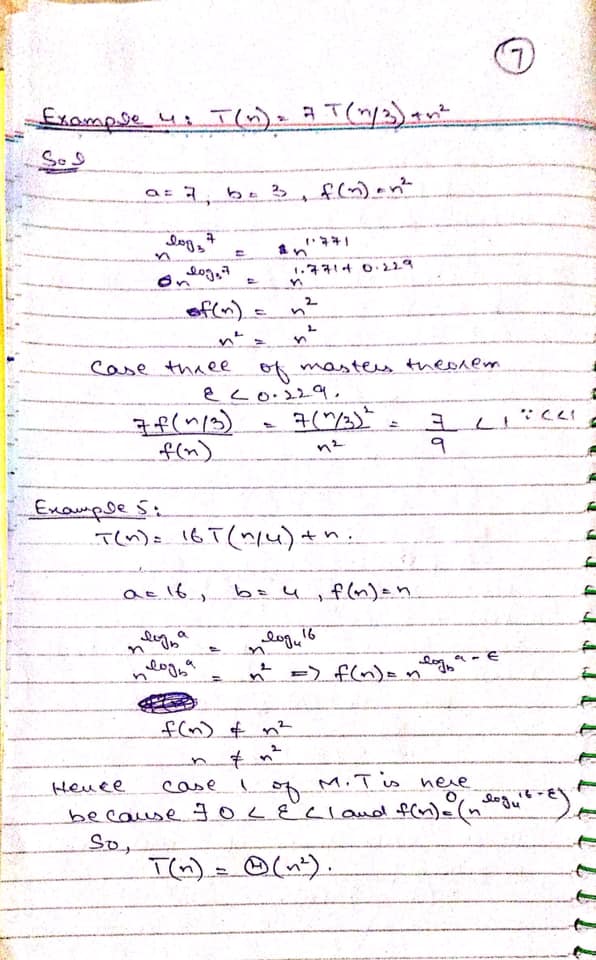 7
Example 4: T(n) = 7 T(n/3) + n²
Sol
a = 7, b = 3, f(n) = n²
n^log₃7 = n^1.771
n^log₃7 = n^1.771+0.229
f(n) = n²
n² = n²
Case three of masters theorem
ε < 0.229.
7f(n/3)/f(n) = 7(n/3)²/n² = 7/9 < 1 ∵ c<1
Example 5:
T(n) = 16T(n/4) + n.
a = 16, b = 4, f(n) = n
n^log_b a = n^log₄16
n^log_b a = n² => f(n) = n^log_b a-ε
f(n) ≠ n²
n ≠ n²
Hence case 1 of M.T is here
because ∃ 0 < ε < 1 and f(n) = O(n^log₄16-ε)
So,
T(n) = Θ(n²).